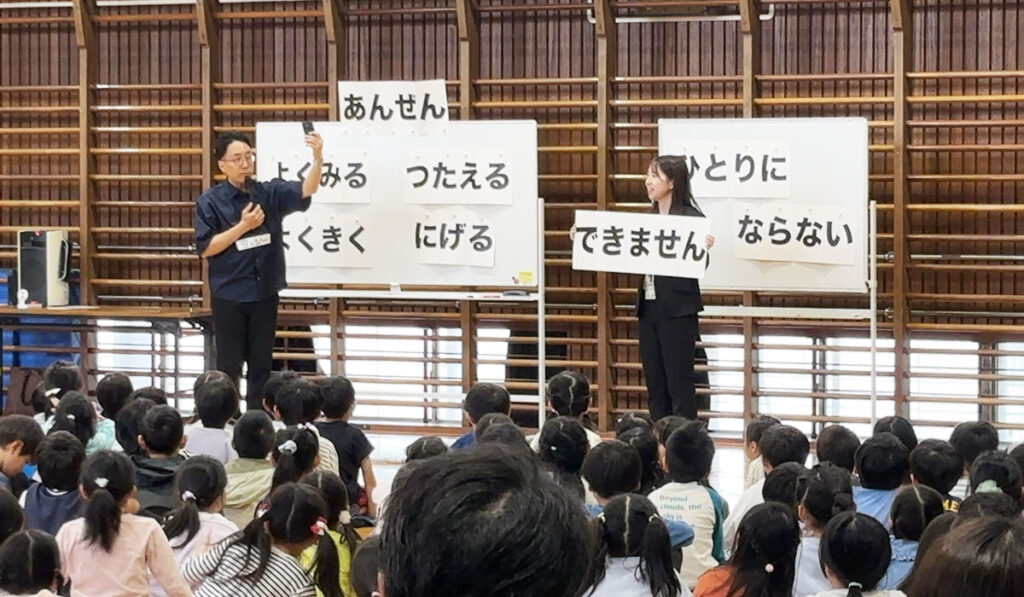 あんぜん
よくみる
つたえる
よくきく
にげる
ひとりに
できません
ならない
Beyond
clouds, the
sky is